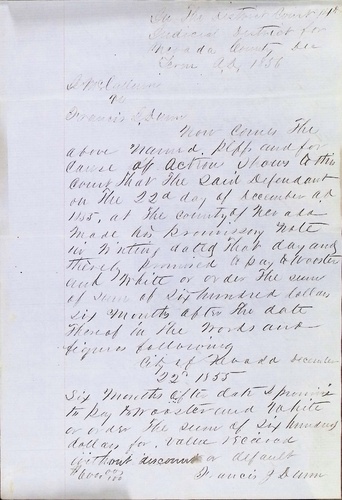 In The District Court
Judicial District for
Nevada County Dec
Term A.D. 1856
vs
Francis J Dunn
Now Comes The
above Named Plff and for
Cause of Action Shows to this
Court That The Said Defendant
on The 22d day of December A.D.
1855, at The County of Nevada
Made his promissory Note
in Writing dated that day and
thereby promised to pay to Wooster
and White or order The Sum
of Sum of Six hundred dollars
Six Months after The date
Thereof in The Words and
figures following
City of Nevada December
22d 1855
Six Months after date I promise
to pay to Wooster and White
or order The Sum of Six hundred
dollars for Value received
Without discount or default
$600 00/100 Francis J Dunn